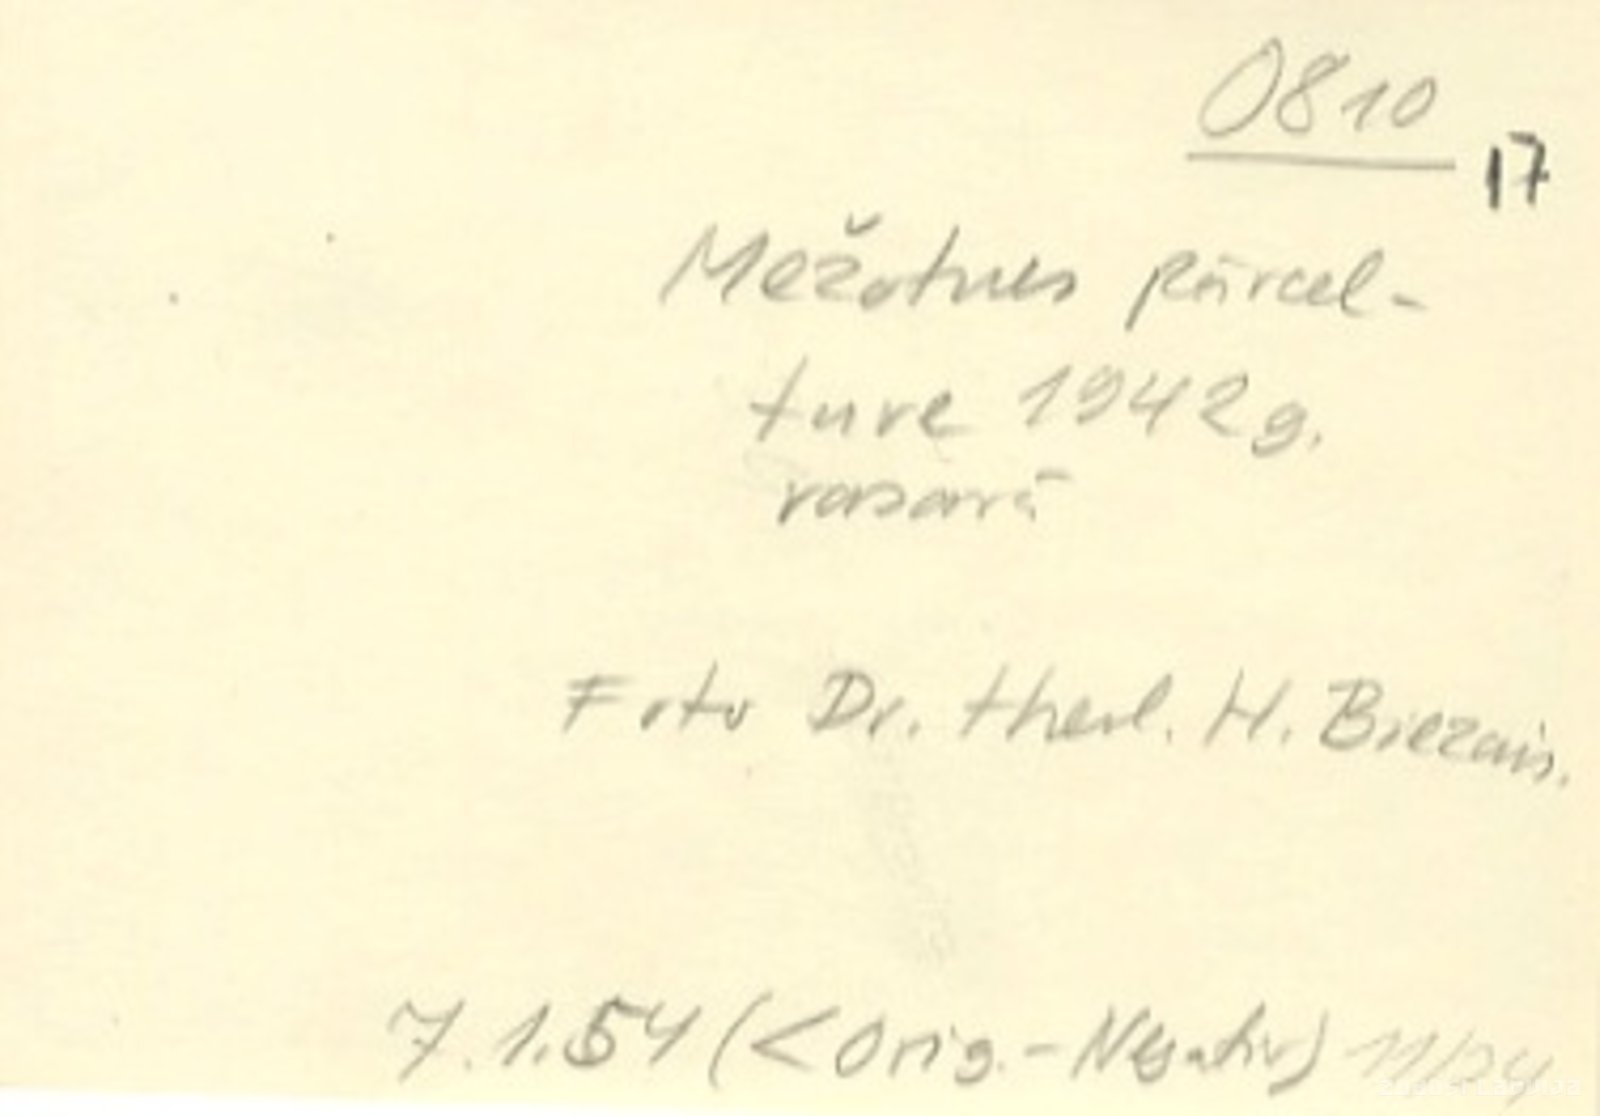 0810
17
Mežotnes pārcel-
tuve 1942 g.
vasarā
Foto Dr. theol. H. Biezais.
7.1.54 (< Orig.-Negativ) 11/24